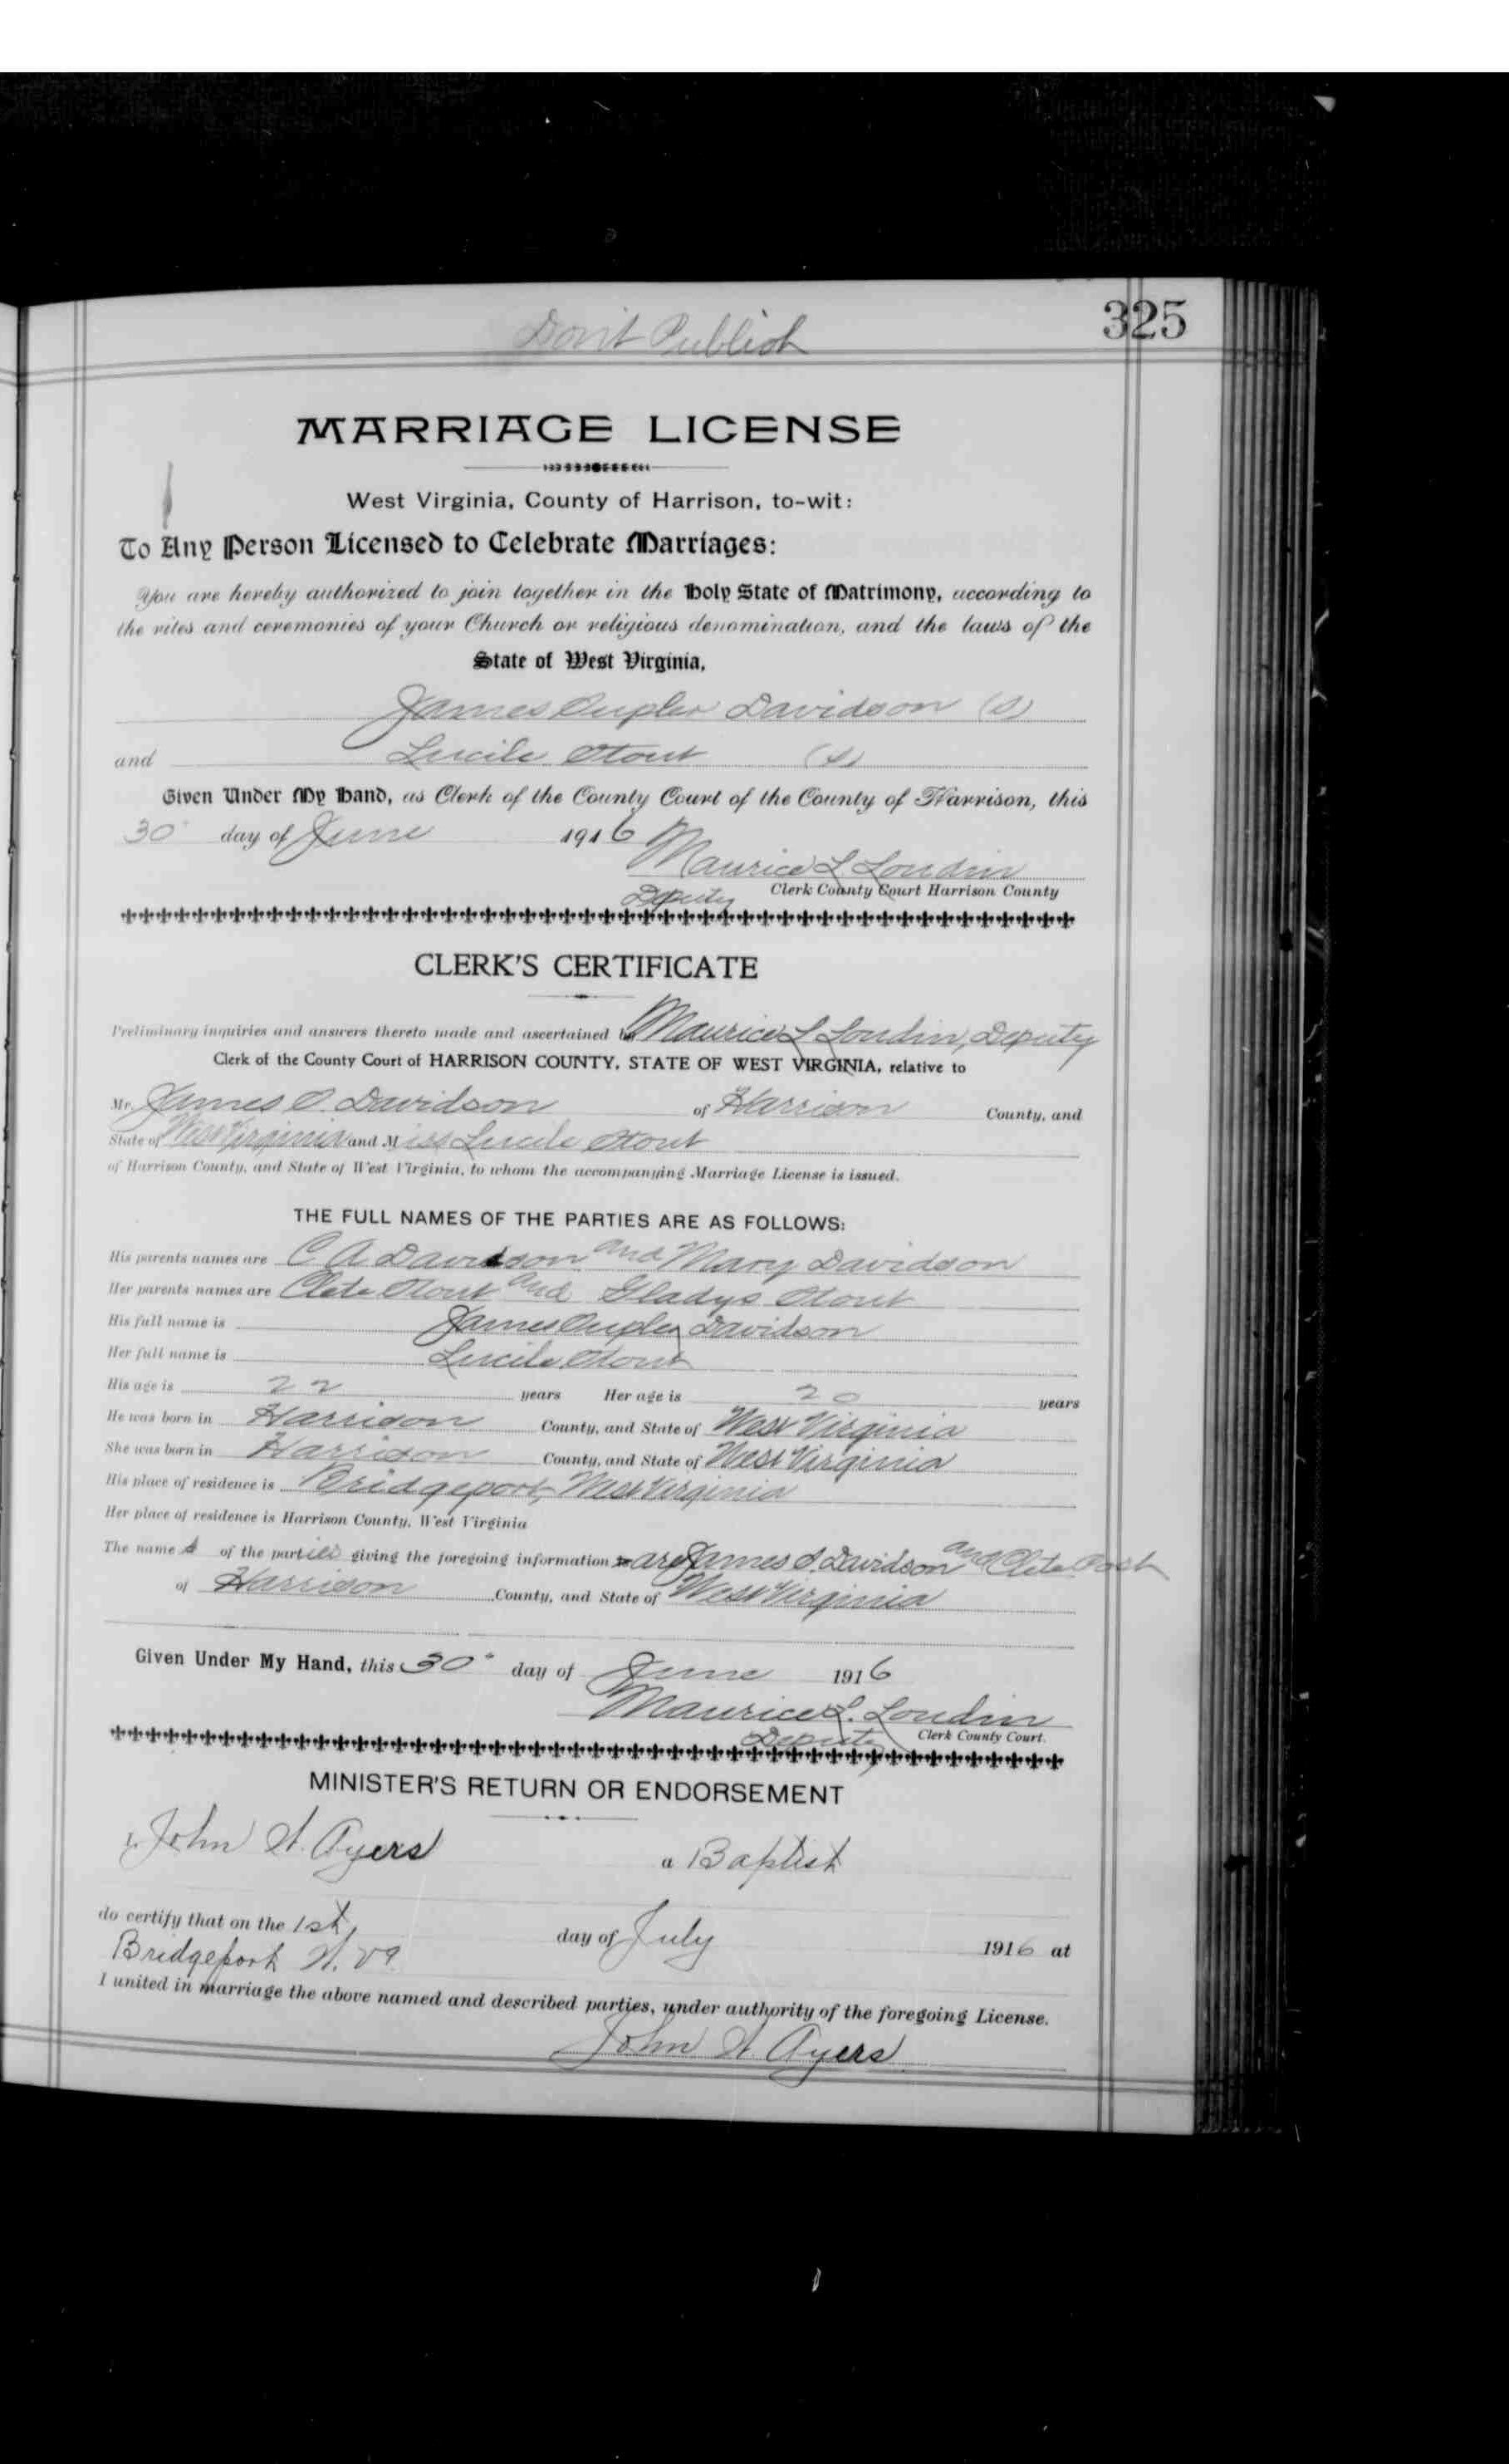 Don't Publish
325
MARRIAGE LICENSE
West Virginia, County of Harrison, to-wit:
To Any Person Licensed to Celebrate Marriages:
You are hereby authorized to join together in the Holy State of Matrimony, according to
the rites and ceremonies of your Church or religious denomination, and the laws of the
State of West Virginia,
James Davidson (S)
and Lucile Stout (S)
Given Under My Hand, as Clerk of the County Court of the County of Harrison, this
30" day of June 1916
Maurice L Loudin
Deputy Clerk County Court Harrison County
CLERK'S CERTIFICATE
Preliminary inquiries and answers thereto made and ascertained by Maurice L Loudin, Deputy
Clerk of the County Court of HARRISON COUNTY, STATE OF WEST VIRGINIA, relative to
Mr. James Davidson of Harrison County, and
State of West Virginia and Miss Lucile Stout
of Harrison County, and State of West Virginia, to whom the accompanying Marriage License is issued.
THE FULL NAMES OF THE PARTIES ARE AS FOLLOWS:
His parents names are C A Davidson and Mary Davidson
Her parents names are Clete Stout and Gladys Stout
His full name is James Davidson
Her full name is Lucile Stout
His age is 22 years Her age is 20 years
He was born in Harrison County, and State of West Virginia
She was born in Harrison County, and State of West Virginia
His place of residence is Bridgeport, West Virginia
Her place of residence is Harrison County, West Virginia
The name s of the parties giving the foregoing information are James Davidson and Clete
of Harrison County, and State of West Virginia
Given Under My Hand, this 30" day of June 1916
Maurice L. Loudin
Deputy Clerk County Court.
MINISTER'S RETURN OR ENDORSEMENT
I, John W. Ayers a Baptist
do certify that on the 1st, day of July 1916 at
Bridgeport W. Va.
I united in marriage the above named and described parties, under authority of the foregoing License.
John W. Ayers